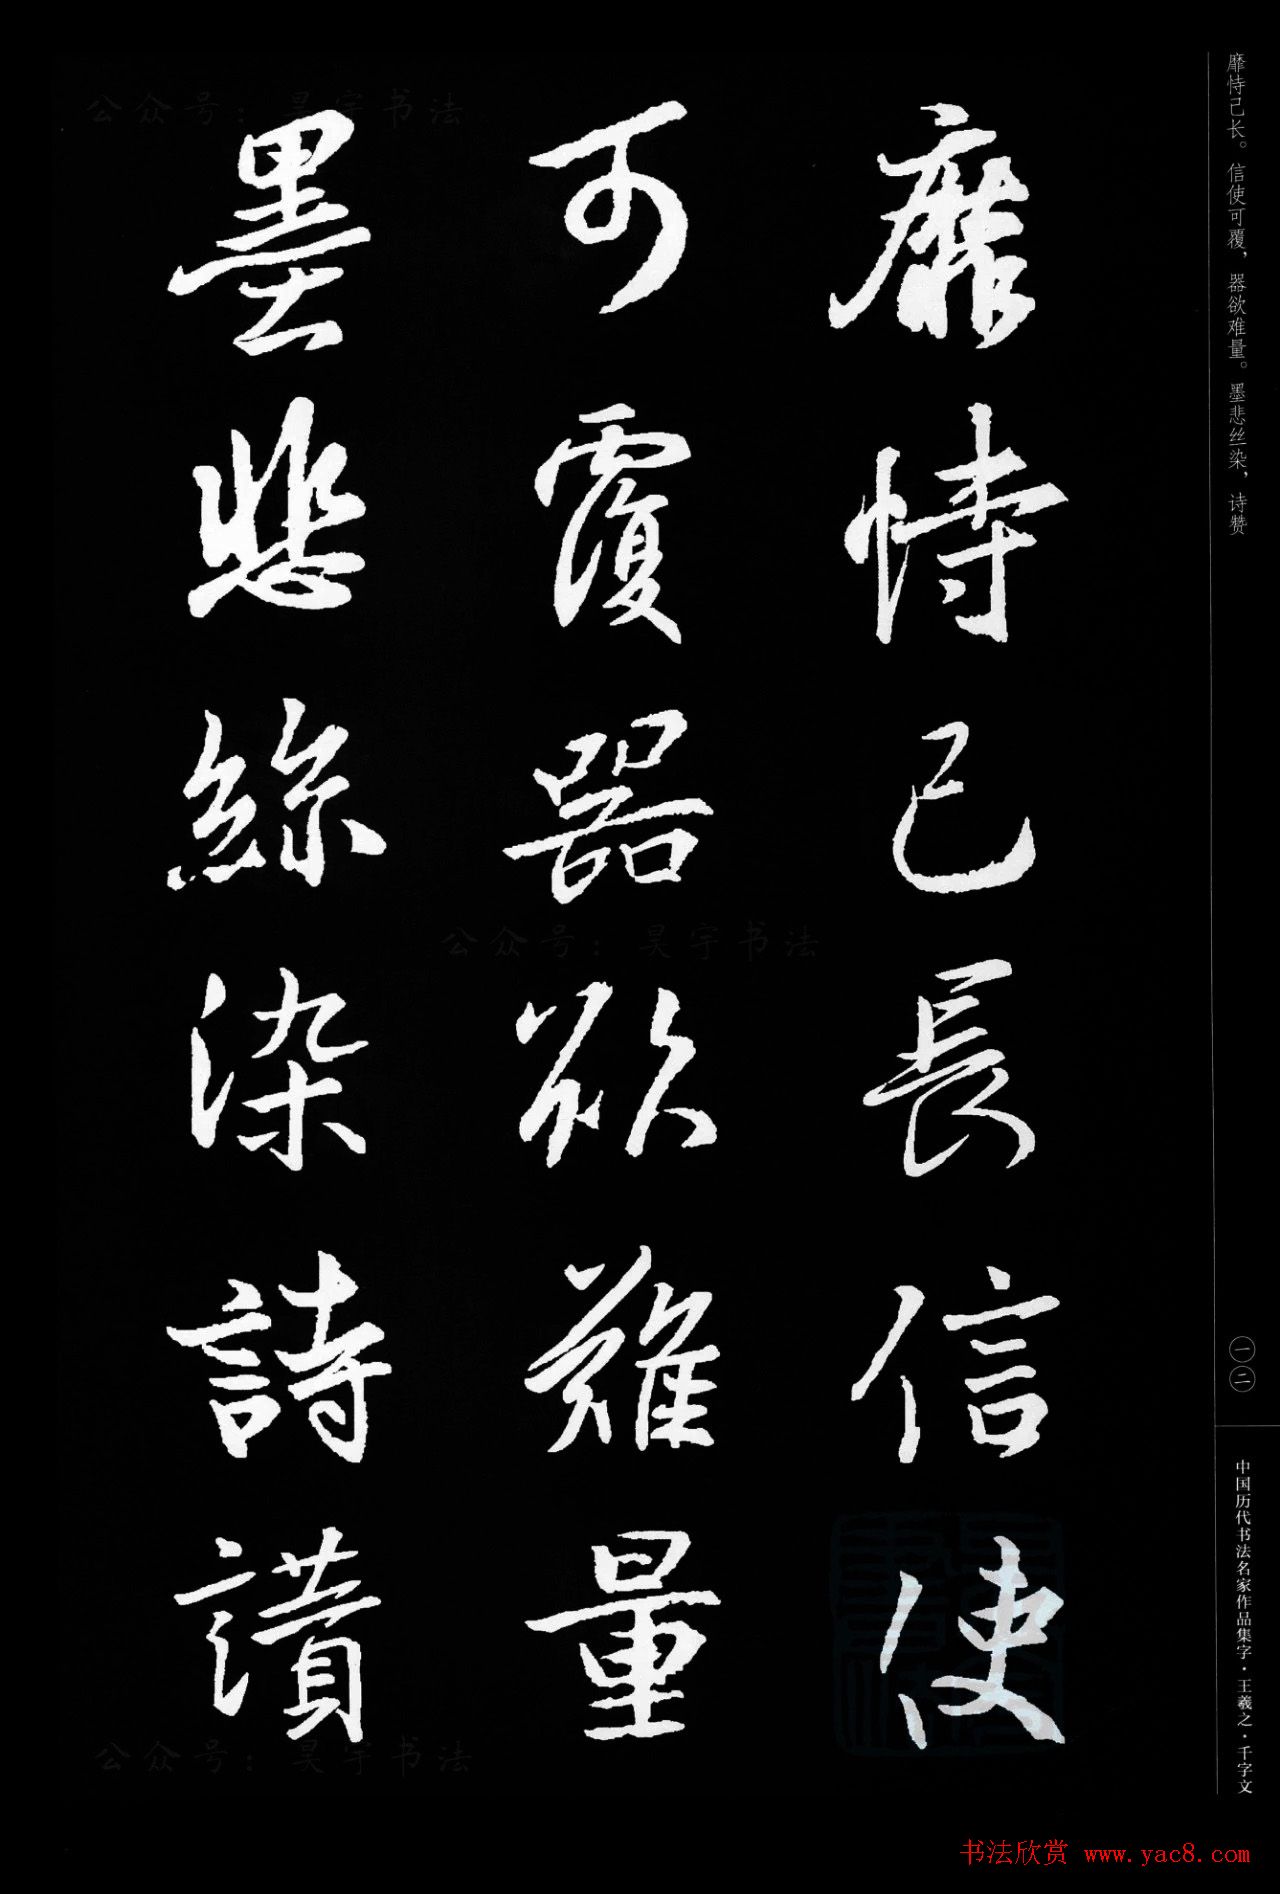 靡恃己長信使
可覆器欲難量
墨悲絲染詩讚
靡恃己长。信使可覆，器欲难量。墨悲丝染，诗赞
一二
中国历代书法名家作品集字·王羲之·千字文
公众号：昊宇书法
公众号：昊宇书法
公众号：昊宇书法
书法欣赏 www.yac8.com